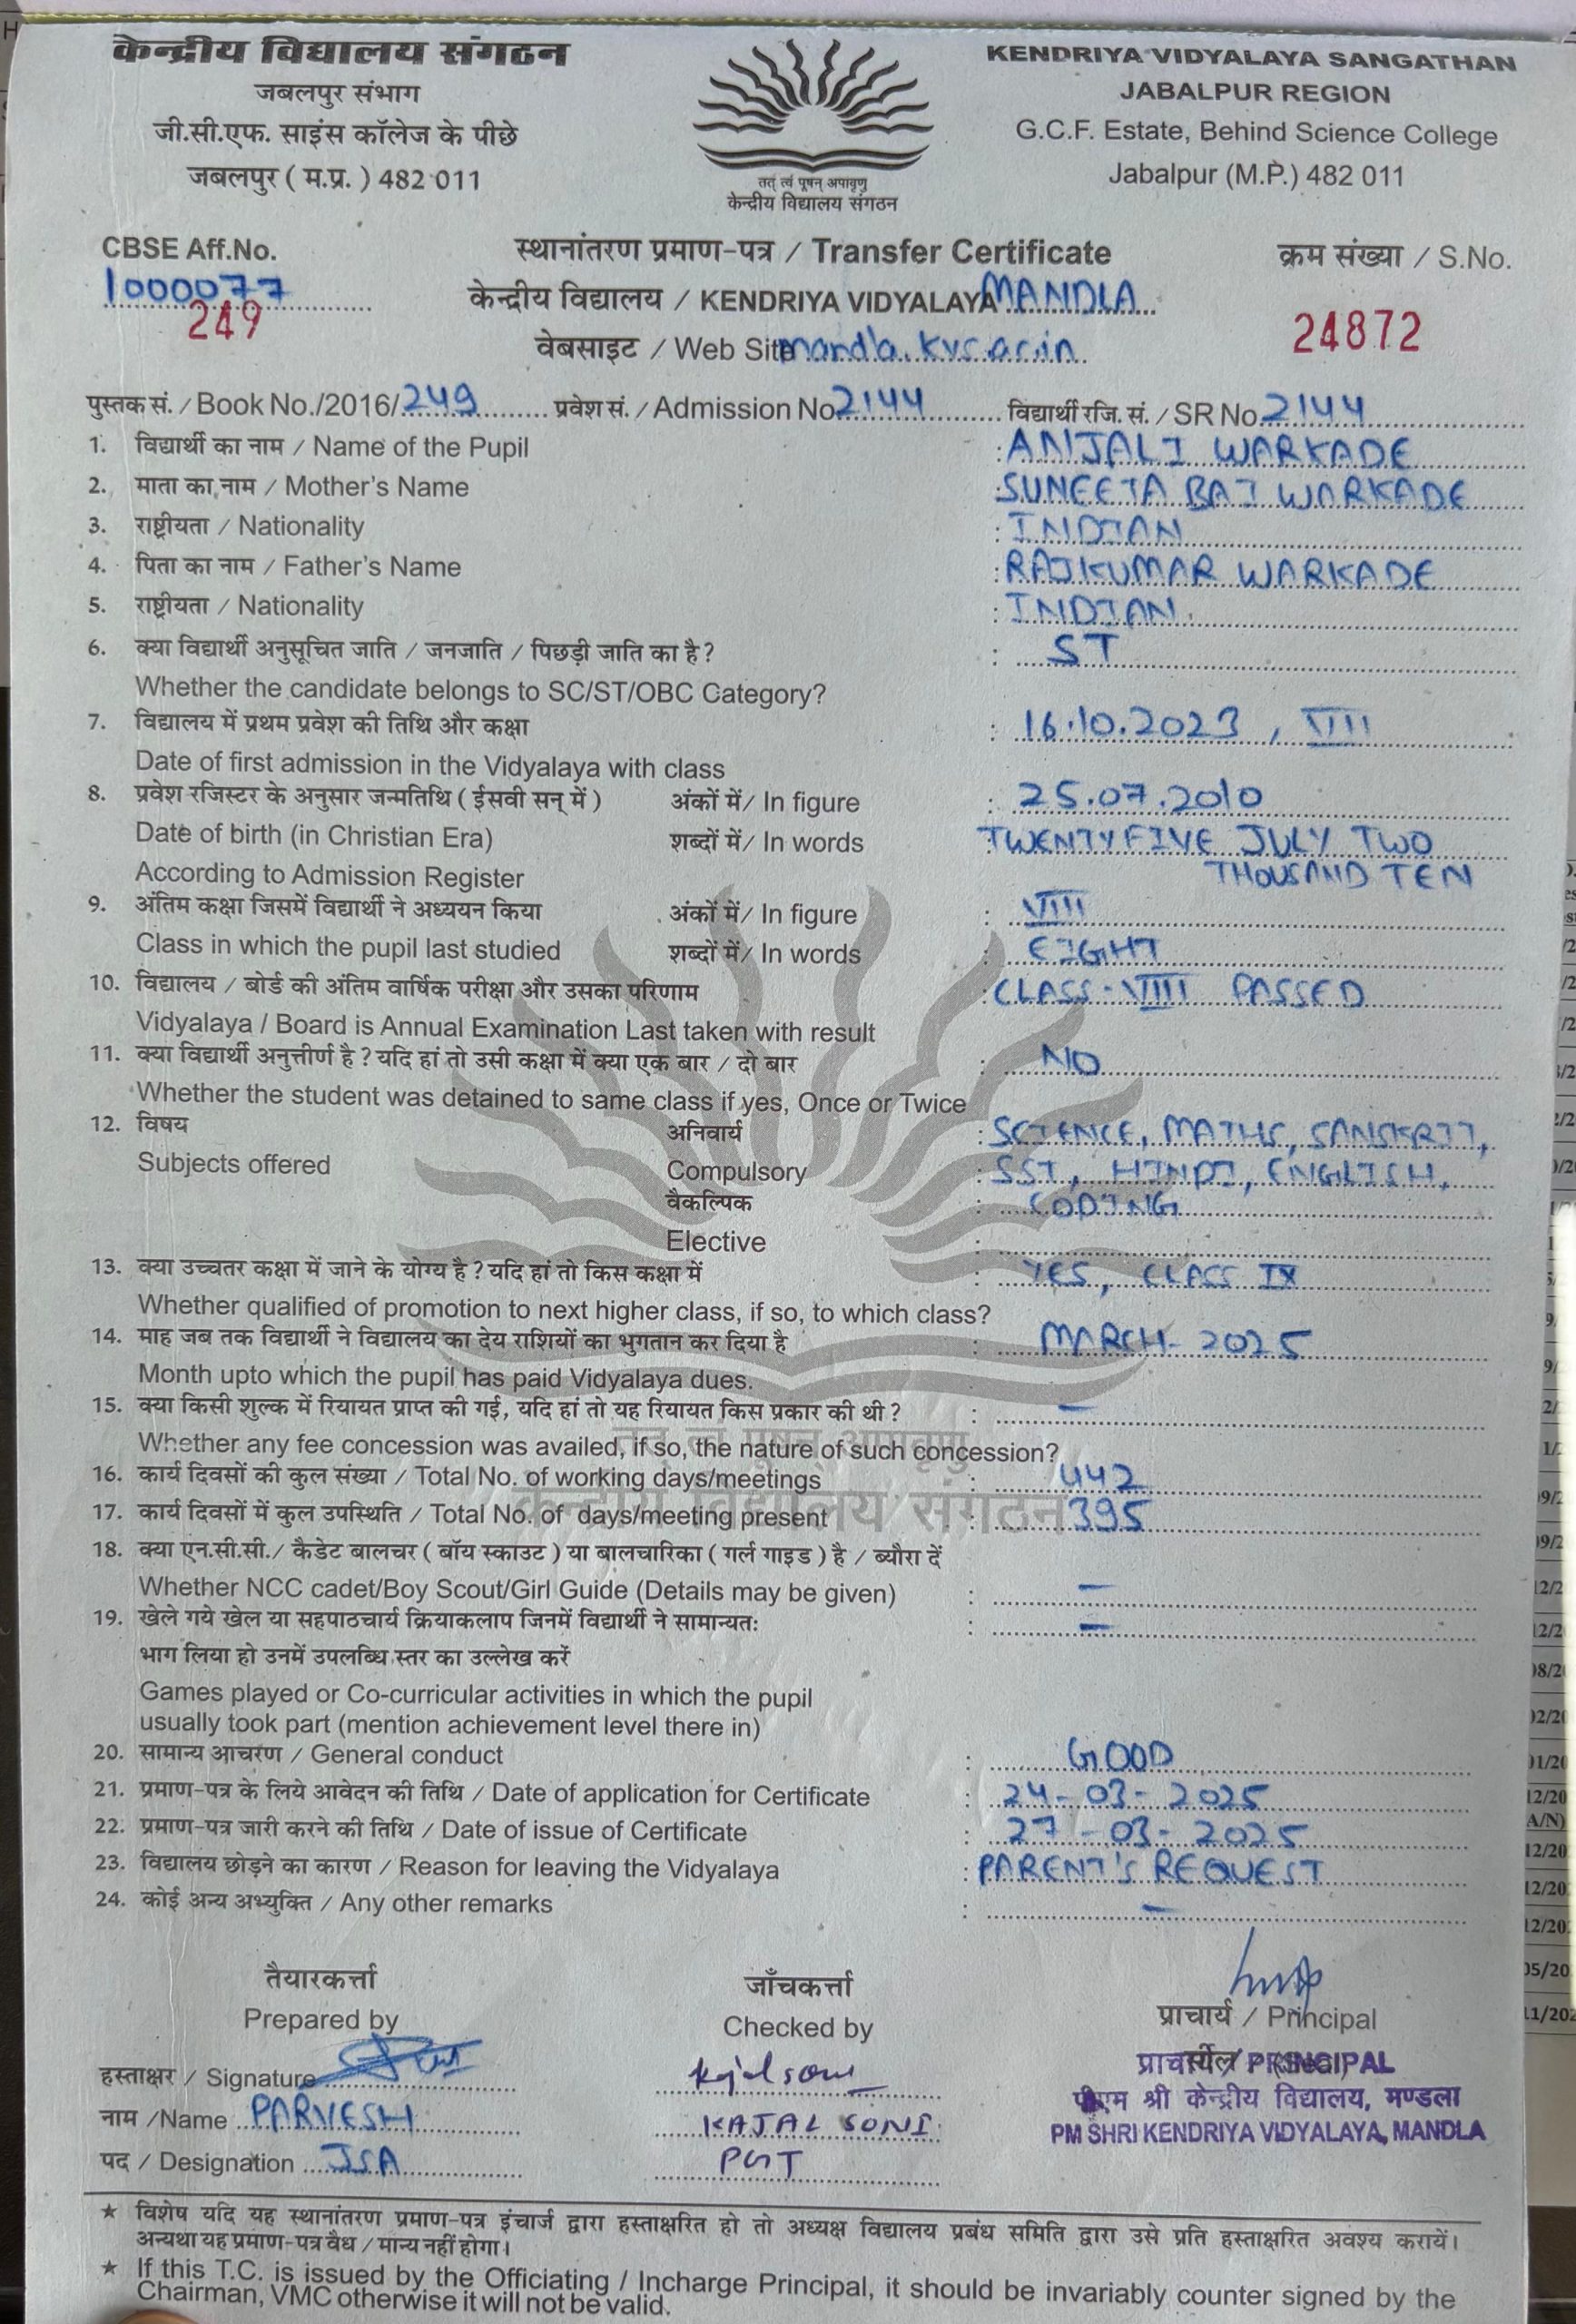 केन्द्रीय विद्यालय संगठन
जबलपुर संभाग
जी.सी.एफ. साइंस कॉलेज के पीछे
जबलपुर ( म.प्र. ) 482 011
तत् त्वं पूषन् अपावृणु
केन्द्रीय विद्यालय संगठन
KENDRIYA VIDYALAYA SANGATHAN
JABALPUR REGION
G.C.F. Estate, Behind Science College
Jabalpur (M.P.) 482 011
CBSE Aff.No.
1000077
249
स्थानांतरण प्रमाण-पत्र / Transfer Certificate
केन्द्रीय विद्यालय / KENDRIYA VIDYALAYA MANDLA
वेबसाइट / Web Site mandla.kvs.ac.in
क्रम संख्या / S.No.
24872
पुस्तक सं. / Book No./2016/ 249 प्रवेश सं. / Admission No 2144 विद्यार्थी रजि. सं. / SR No. 2144
1. विद्यार्थी का नाम / Name of the Pupil : ANJALI WARKADE
2. माता का नाम / Mother's Name : SUNEETA BAI WARKADE
3. राष्ट्रीयता / Nationality : INDIAN
4. पिता का नाम / Father's Name : RAJKUMAR WARKADE
5. राष्ट्रीयता / Nationality : INDIAN
6. क्या विद्यार्थी अनुसूचित जाति / जनजाति / पिछड़ी जाति का है ? : ST
Whether the candidate belongs to SC/ST/OBC Category?
7. विद्यालय में प्रथम प्रवेश की तिथि और कक्षा : 16.10.2023 , VIII
Date of first admission in the Vidyalaya with class
8. प्रवेश रजिस्टर के अनुसार जन्मतिथि ( ईसवी सन् में ) अंकों में/ In figure : 25.07.2010
Date of birth (in Christian Era) शब्दों में/ In words : TWENTY FIVE JULY TWO
According to Admission Register THOUSAND TEN
9. अंतिम कक्षा जिसमें विद्यार्थी ने अध्ययन किया अंकों में/ In figure : VIII
Class in which the pupil last studied शब्दों में/ In words : EIGHT
10. विद्यालय / बोर्ड की अंतिम वार्षिक परीक्षा और उसका परिणाम : CLASS-VIII PASSED
Vidyalaya / Board is Annual Examination Last taken with result
11. क्या विद्यार्थी अनुत्तीर्ण है ? यदि हां तो उसी कक्षा में क्या एक बार / दो बार : NO
Whether the student was detained to same class if yes, Once or Twice
12. विषय अनिवार्य : SCIENCE, MATHS, SANSKRIT,
Subjects offered Compulsory : SST, HINDI, ENGLISH,
वैकल्पिक : CODING
Elective :
13. क्या उच्चतर कक्षा में जाने के योग्य है ? यदि हां तो किस कक्षा में : YES, CLASS IX
Whether qualified of promotion to next higher class, if so, to which class?
14. माह जब तक विद्यार्थी ने विद्यालय का देय राशियों का भुगतान कर दिया है : MARCH-2025
Month upto which the pupil has paid Vidyalaya dues.
15. क्या किसी शुल्क में रियायत प्राप्त की गई, यदि हां तो यह रियायत किस प्रकार की थी ? : —
Whether any fee concession was availed, if so, the nature of such concession?
तत् त्वं पूषन् अपावृणु
16. कार्य दिवसों की कुल संख्या / Total No. of working days/meetings : 442
केन्द्रीय विद्यालय संगठन
17. कार्य दिवसों में कुल उपस्थिति / Total No. of days/meeting present : 395
18. क्या एन.सी.सी./ कैडेट बालचर ( बॉय स्काउट ) या बालचारिका ( गर्ल गाइड ) है / ब्यौरा दें
Whether NCC cadet/Boy Scout/Girl Guide (Details may be given) : —
19. खेले गये खेल या सहपाठचार्य क्रियाकलाप जिनमें विद्यार्थी ने सामान्यतः : —
भाग लिया हो उनमें उपलब्धि स्तर का उल्लेख करें
Games played or Co-curricular activities in which the pupil
usually took part (mention achievement level there in)
20. सामान्य आचरण / General conduct : GOOD
21. प्रमाण-पत्र के लिये आवेदन की तिथि / Date of application for Certificate : 24-03-2025
22. प्रमाण-पत्र जारी करने की तिथि / Date of issue of Certificate : 27-03-2025
23. विद्यालय छोड़ने का कारण / Reason for leaving the Vidyalaya : PARENT'S REQUEST
24. कोई अन्य अभ्युक्ति / Any other remarks : —
तैयारकर्त्ता
Prepared by
जाँचकर्त्ता
Checked by
प्राचार्य / Principal
हस्ताक्षर / Signature
Kajal soni
नाम /Name PARVESH
KAJAL SONI
पद / Designation JSA
PGT
प्राचार्य / PRINCIPAL
पीएम श्री केन्द्रीय विद्यालय, मण्डला
PM SHRI KENDRIYA VIDYALAYA, MANDLA
★ विशेष यदि यह स्थानांतरण प्रमाण-पत्र इंचार्ज द्वारा हस्ताक्षरित हो तो अध्यक्ष विद्यालय प्रबंध समिति द्वारा उसे प्रति हस्ताक्षरित अवश्य करायें।
अन्यथा यह प्रमाण-पत्र वैध / मान्य नहीं होगा।
★ If this T.C. is issued by the Officiating / Incharge Principal, it should be invariably counter signed by the
Chairman, VMC otherwise it will not be valid.